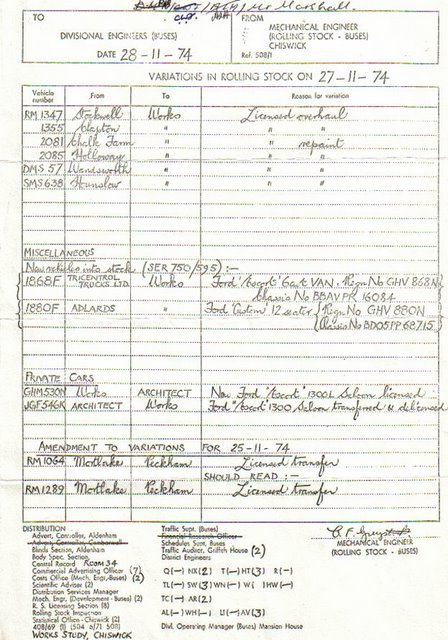 Mr Marshall.
TO
DIVISIONAL ENGINEERS (BUSES)
DATE 28-11-74
FROM
MECHANICAL ENGINEER
(ROLLING STOCK - BUSES)
CHISWICK
Ref. 508/1
VARIATIONS IN ROLLING STOCK ON 27-11-74
Vehicle number From To Reason for variation
RM 1347 Stockwell Works Licensed overhaul
1355 Clapton " " "
2081 Chalk Farm " " repaint
2085 Holloway " " "
DMS 57 Wandsworth " " "
SMS 638 Hounslow " " "
MISCELLANEOUS
New vehicles into stock (SER 750/595) :-
1868F TRICENTROL TRUCKS LTD. Works Ford 'Escort' 6cwt VAN. Regn No GHV 868N
Chassis No BBAVPR 16084
1880F ADLARDS " Ford 'Custom' 12 seater Regn. No GHV 880N
Chassis No BD05PP 68715
PRIVATE CARS
GHM530N Works ARCHITECT New Ford "Escort" 1300L Saloon licensed
JGF546K ARCHITECT Works Ford "Escort" 1300 Saloon transferred & delicensed
AMENDMENT TO VARIATIONS FOR 25-11-74
RM 1064 Mortlake Peckham Licensed transfer
SHOULD READ :-
RM 1289 Mortlake Peckham Licensed transfer
DISTRIBUTION
Advert. Controller, Aldenham
Advert. Controller, Camberwell
Blinds Section, Aldenham
Body Spec. Section
Central Record ROOM 34
Commercial Advertising Officer (7)
Costs Office (Mech. Engr.-Buses) (2)
Scientific Adviser (2)
Distribution Services Manager
Mech. Engr. (Development - Buses) (2)
R. S. Licensing Section (8)
Rolling Stock Inspection
Statistical Office - Chiswick (2)
408/69 (1) (504 6/71 508)
WORKS STUDY, CHISWICK
Traffic Supt. (Buses)
Financial Research Officer
Schedules Supt. Buses
Traffic Auditor, Griffith House (2)
District Engineers
Q(—) NX(2) T(—) HT(3) R(—)
TL(—) SW(3) WN(—) W( ) HW(—)
TC(—) AR(2)
AL(—) WH(—) LI(—) AV(3)
Divl. Operating Manager (Buses) Mansion House
MECHANICAL ENGINEER
(ROLLING STOCK - BUSES)